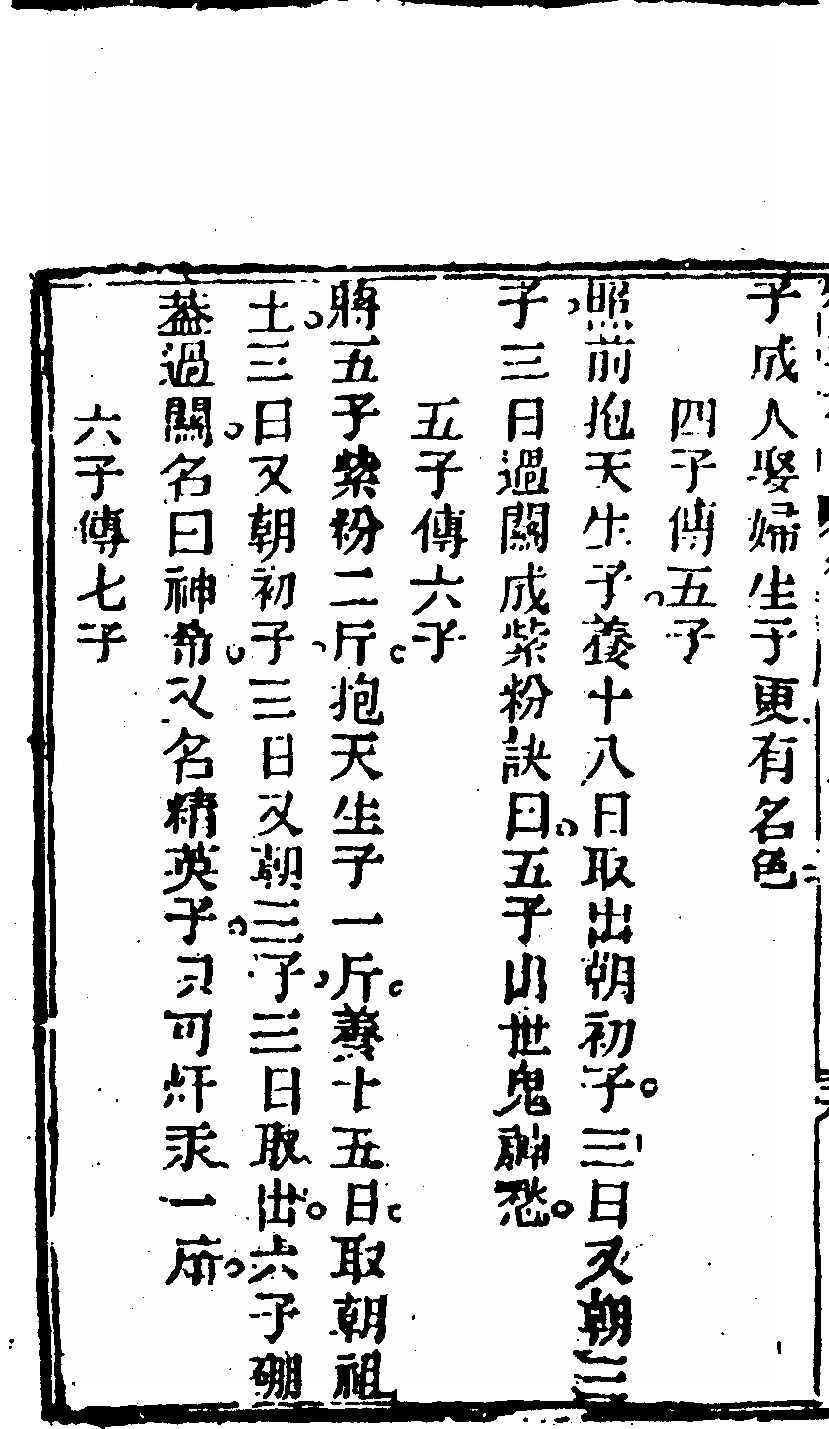 子成人娶婦生子更有名色
四子傳五子
照前抱天生子養十八日取出朝初子三日又朝三
子三日過關成紫粉訣曰五子出世鬼神愁
五子傳六子
將五子紫粉二斤抱天生子一斤養十五日取朝祖
土三日又朝初子三日又朝三子三日取出六子硼
蓋過關名曰神符又名精英子只可煿汞一兩
六子傳七子